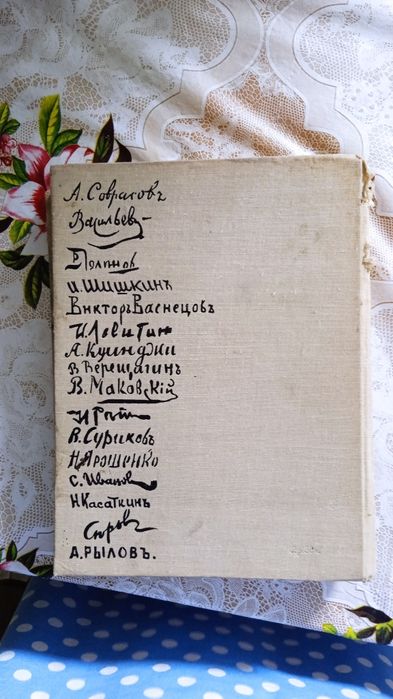 А. Саврасовъ
Васильевъ
В Поленов
И. Шишкинъ
Викторъ Васнецовъ
И Левитан
А. Куинджи
В Верещагинъ
В. Маковскій
В. Суриковъ
Н Ярошенко
С. Иванов
Н. Касаткинъ
Серов
А. РЫЛОВЪ.